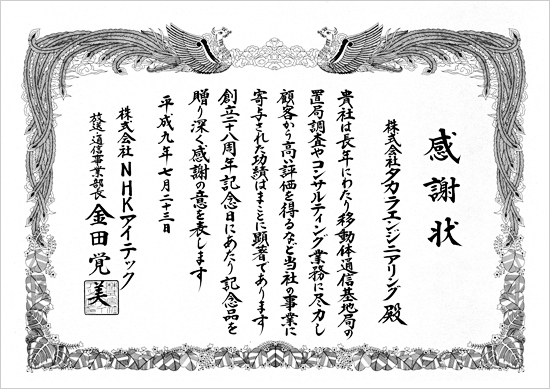 感謝状
株式会社タカラエンジニアリング殿
貴社は長年にわたり移動体通信基地局の
置局調査やコンサルティング業務に尽力し
顧客から高い評価を得るなど当社の事業に
寄与された功績はまことに顕著であります
創立二十八周年記念日にあたり記念品を
贈り深く感謝の意を表します
平成九年七月二十三日
株式会社NHKアイテック
放送・通信事業部長 金田覚美